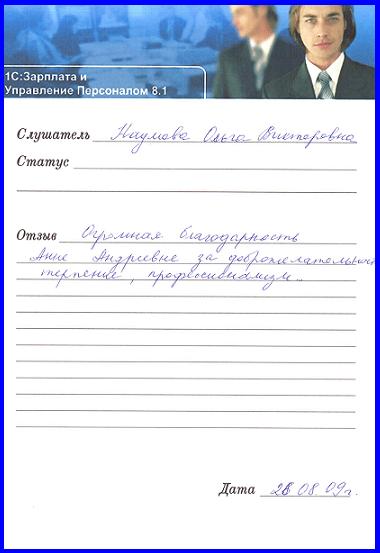 1С:Зарплата и
Управление Персоналом 8.1
Слушатель Наумова Ольга Викторовна
Статус
Отзыв Огромная благодарность
Анне Андреевне за доброжелательность
терпение, профессионализм.
Дата 28 08 09г.